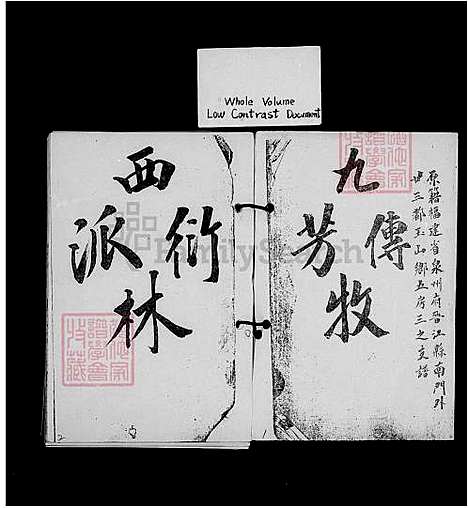 Whole Volume
Low Contrast Document
原籍福建省泉州府晉江縣南門外
廿三都玉山鄉五房三之支譜
九
傳
芳
牧
西
衍
派
林
FamilySearch
2